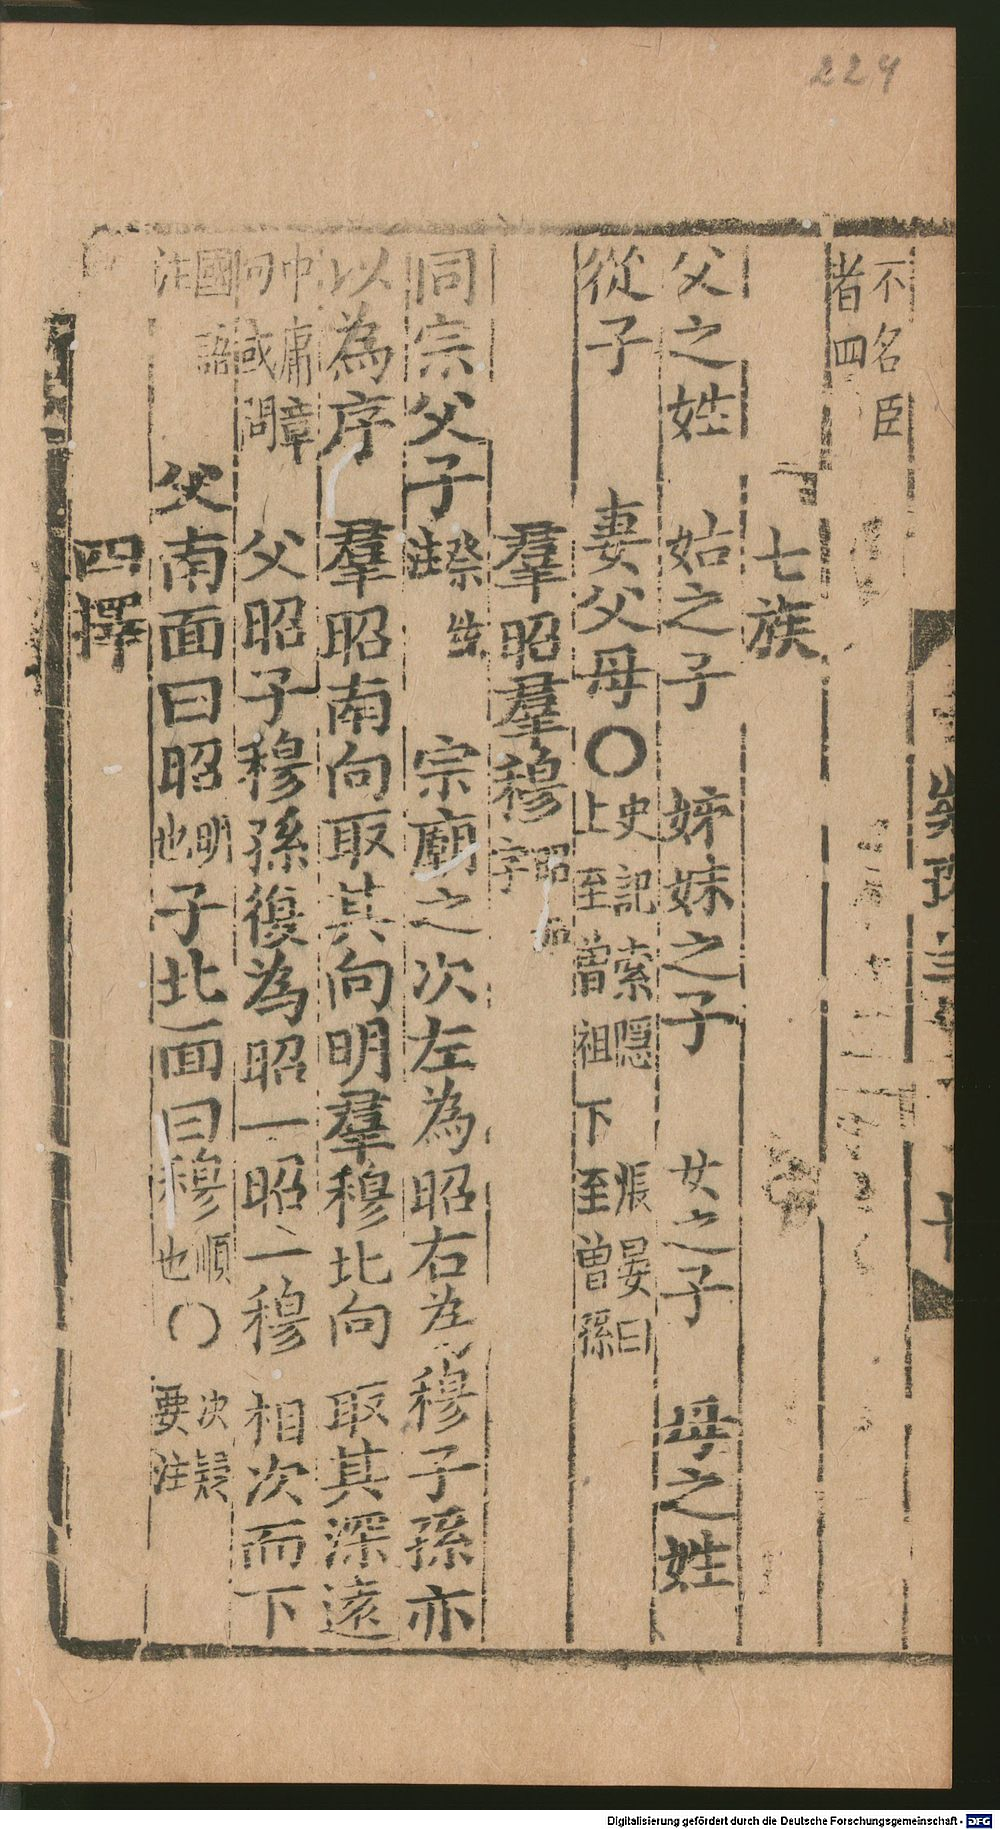 224
不名臣
者四
七族
父之姓 姑之子 姊妹之子 女之子 母之姓
從子 妻父母〇史記索隱 張晏曰
上至曾祖下至曾孫
羣昭羣穆昭
字
同宗父子祭
注 宗廟之次左為昭右為穆子孫亦
以為序 羣昭南向取其向明羣穆北向 取其深遠
中庸章
句或問 父昭子穆孫復為昭一昭一穆 相次而下
國語
注 父南面曰昭明
也子北面曰穆順
也〇次疑
要注
四擇
Digitalisierung gefördert durch die Deutsche Forschungsgemeinschaft - DFG